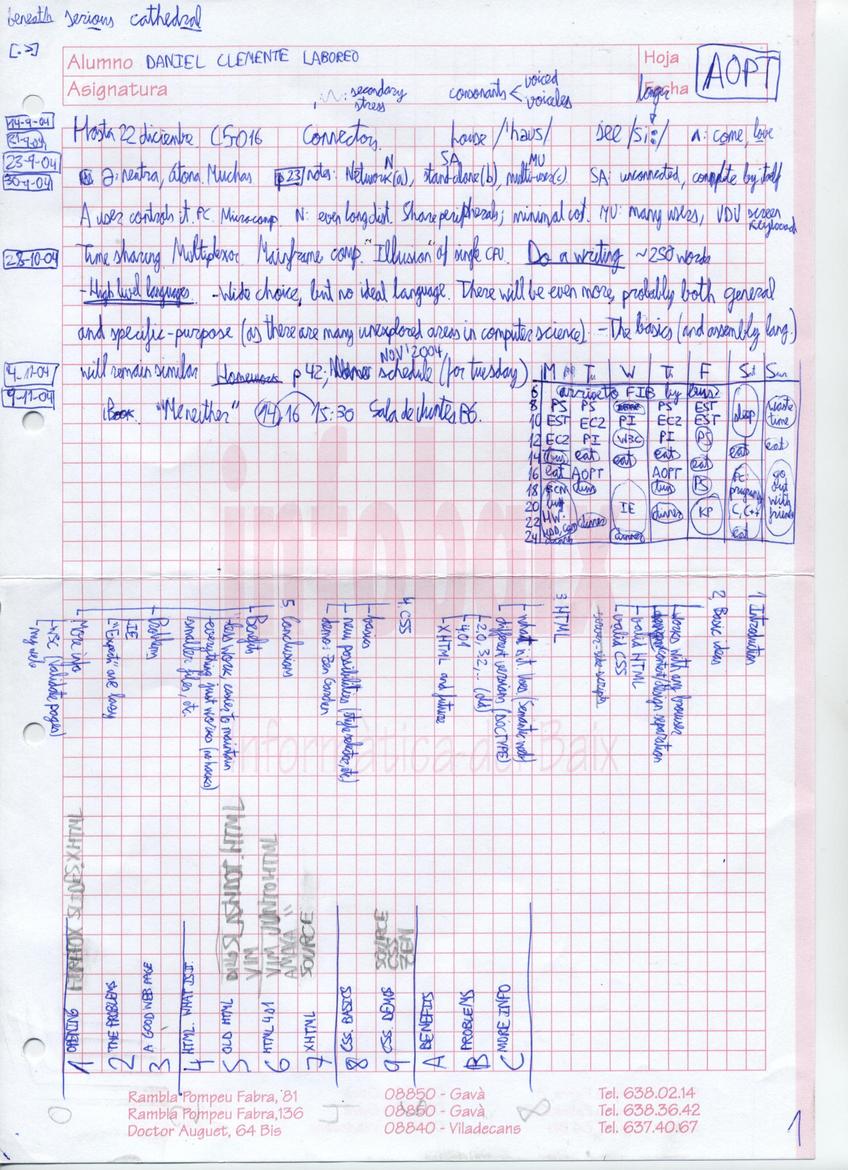 beneath serious cathedral
[.s]
Alumno DANIEL CLEMENTE LABOREO
Hoja
AOPT
Asignatura
Fecha
secondary stress
consonants < voiced voiceless
longer
14-9-04
21-9-04
Hasta 22 diciembre. CS016 Connectors. house /haus/ see /si:/ ʌ: come, love
23-9-04
30-9-04
ə: neutra, átona. Muchas p 23 notes: Network(a), stand-alone(b), multi-user(c) SA: unconnected, complete by itself
N SA MU
A user controls it. PC. Microcomp. N: even long dist. Share peripherals; minimal cost. MU: many users, VDU screen keyboard
28-10-04
Time sharing. Multiplexor Mainframe comp. "Illusion" of single CPU. Do a writing ~250 words
- High level languages. - Wide choice, but no ideal language. There will be even more, probably both general
and specific-purpose (as there are many unexplored areas in computer science). - The basics (and assembly lang.)
4-11-04
9-11-04
will remain similar Homework p 42; schedule (for tuesday)
NOV' 2004
"Me neither" 14, 16 15:30 Sala de juntes B6.
M Tu W Th F Sat Sun
6 arrive to FIB by bus
8 PS PS PS EST sleep waste time
10 EST EC2 PI EC2 EST
12 EC2 PI W3C PI PS eat
14 eat eat eat eat
16 eat AOPT AOPT PS PC: C, C++ go out with friends
18
20 IE dinner KP
22 HW: dinner
24 dinner eat
1. Introduction
2. Basic idea
works with any browser
content/design separation
- valid HTML
- valid CSS
server-side scripts
3. HTML
- what is it. Uses (semantic web)
- different versions (DOCTYPE)
- 2.0, 3.2, ... (old)
- 4.01
- XHTML and future
4. CSS
- basics
- new possibilities
demo: Zen Garden
5. Conclusions
- Benefits
less work, easier to maintain
everything just works (no hacks)
smaller files, etc.
- Problem
IE
"Experts" are lazy
- More info
- W3C (Validate pages)
- my web
1 OPENING FIREFOX SLIDES.XHTML
2 THE PROBLEMS
3 A GOOD WEB PAGE
4 HTML. WHAT IS IT.
5 OLD HTML SLASHDOT.HTML VIM
6 HTML 4.01 VIM JUNTO HTML AMAYA
7 XHTML SOURCE
8 CSS. BASICS
9 CSS. DEMOS SOURCE CSS ZEN
A BENEFITS
B PROBLEMS
C MORE INFO
infobaix
informàtica del Baix
Rambla Pompeu Fabra, 81 08850 - Gavà Tel. 638.02.14
Rambla Pompeu Fabra, 136 08850 - Gavà Tel. 638.36.42
Doctor Auguet, 64 Bis 08840 - Viladecans Tel. 637.40.67
0
8
1